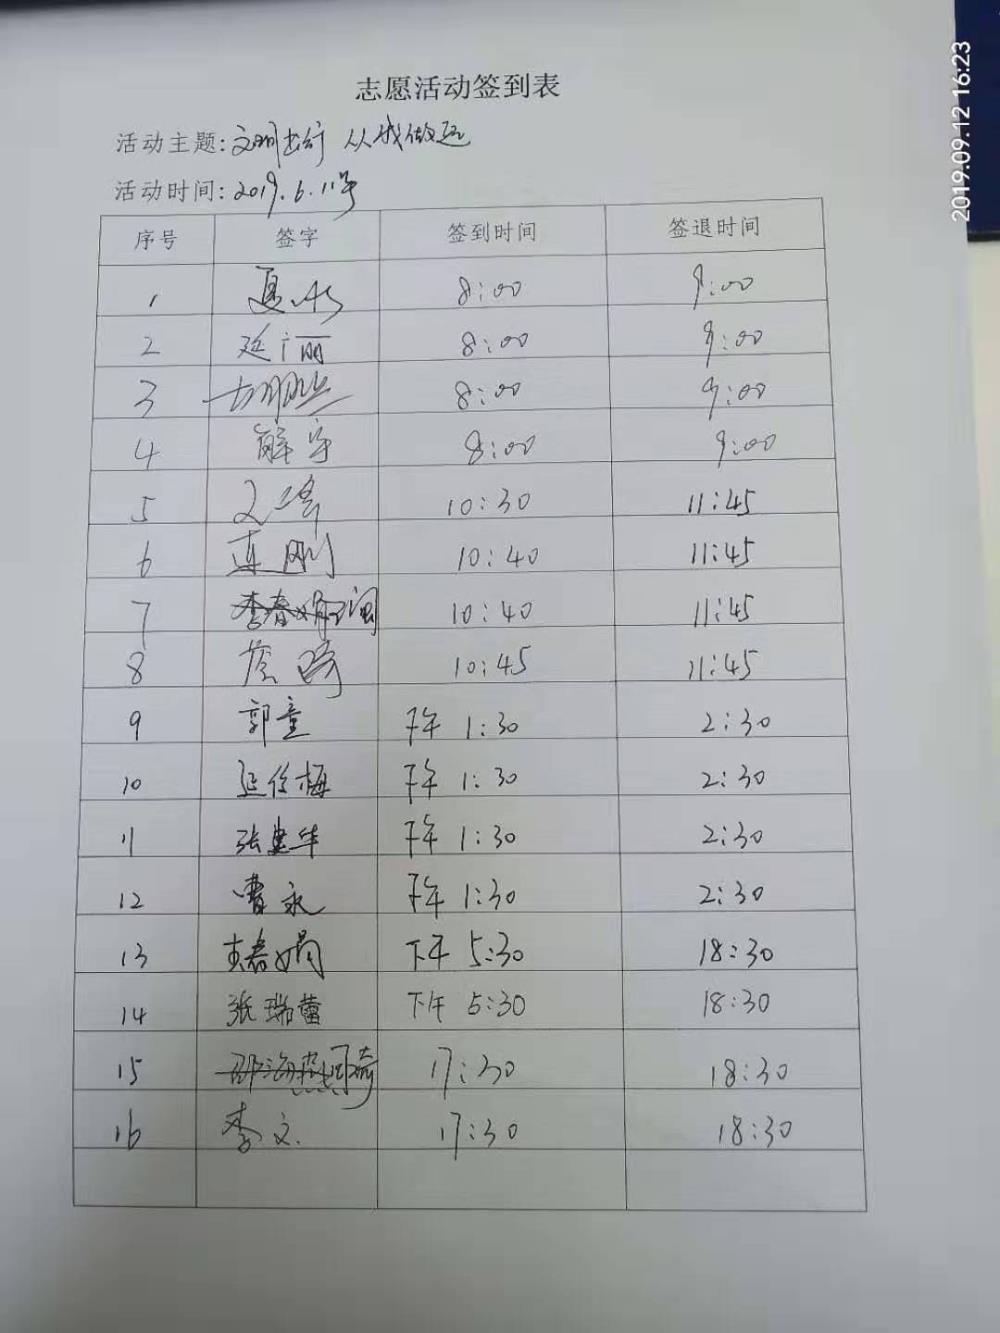 志愿活动签到表
活动主题:文明出行 从我做起
活动时间:2019.6.11号
序号 签字 签到时间 签退时间
1 8:00 9:00
2 延广丽 8:00 9:00
3 8:00 9:00
4 解宇 8:00 9:00
5 10:30 11:45
6 连刚 10:40 11:45
7 10:40 11:45
8 10:45 11:45
9 郭童 下午 1:30 2:30
10 延俊梅 下午 1:30 2:30
11 张建华 下午 1:30 2:30
12 曹永 下午 1:30 2:30
13 春娟 下午 5:30 18:30
14 张瑞蕾 下午 5:30 18:30
15 17:30 18:30
16 李文 17:30 18:30
2019.09.12 16:23